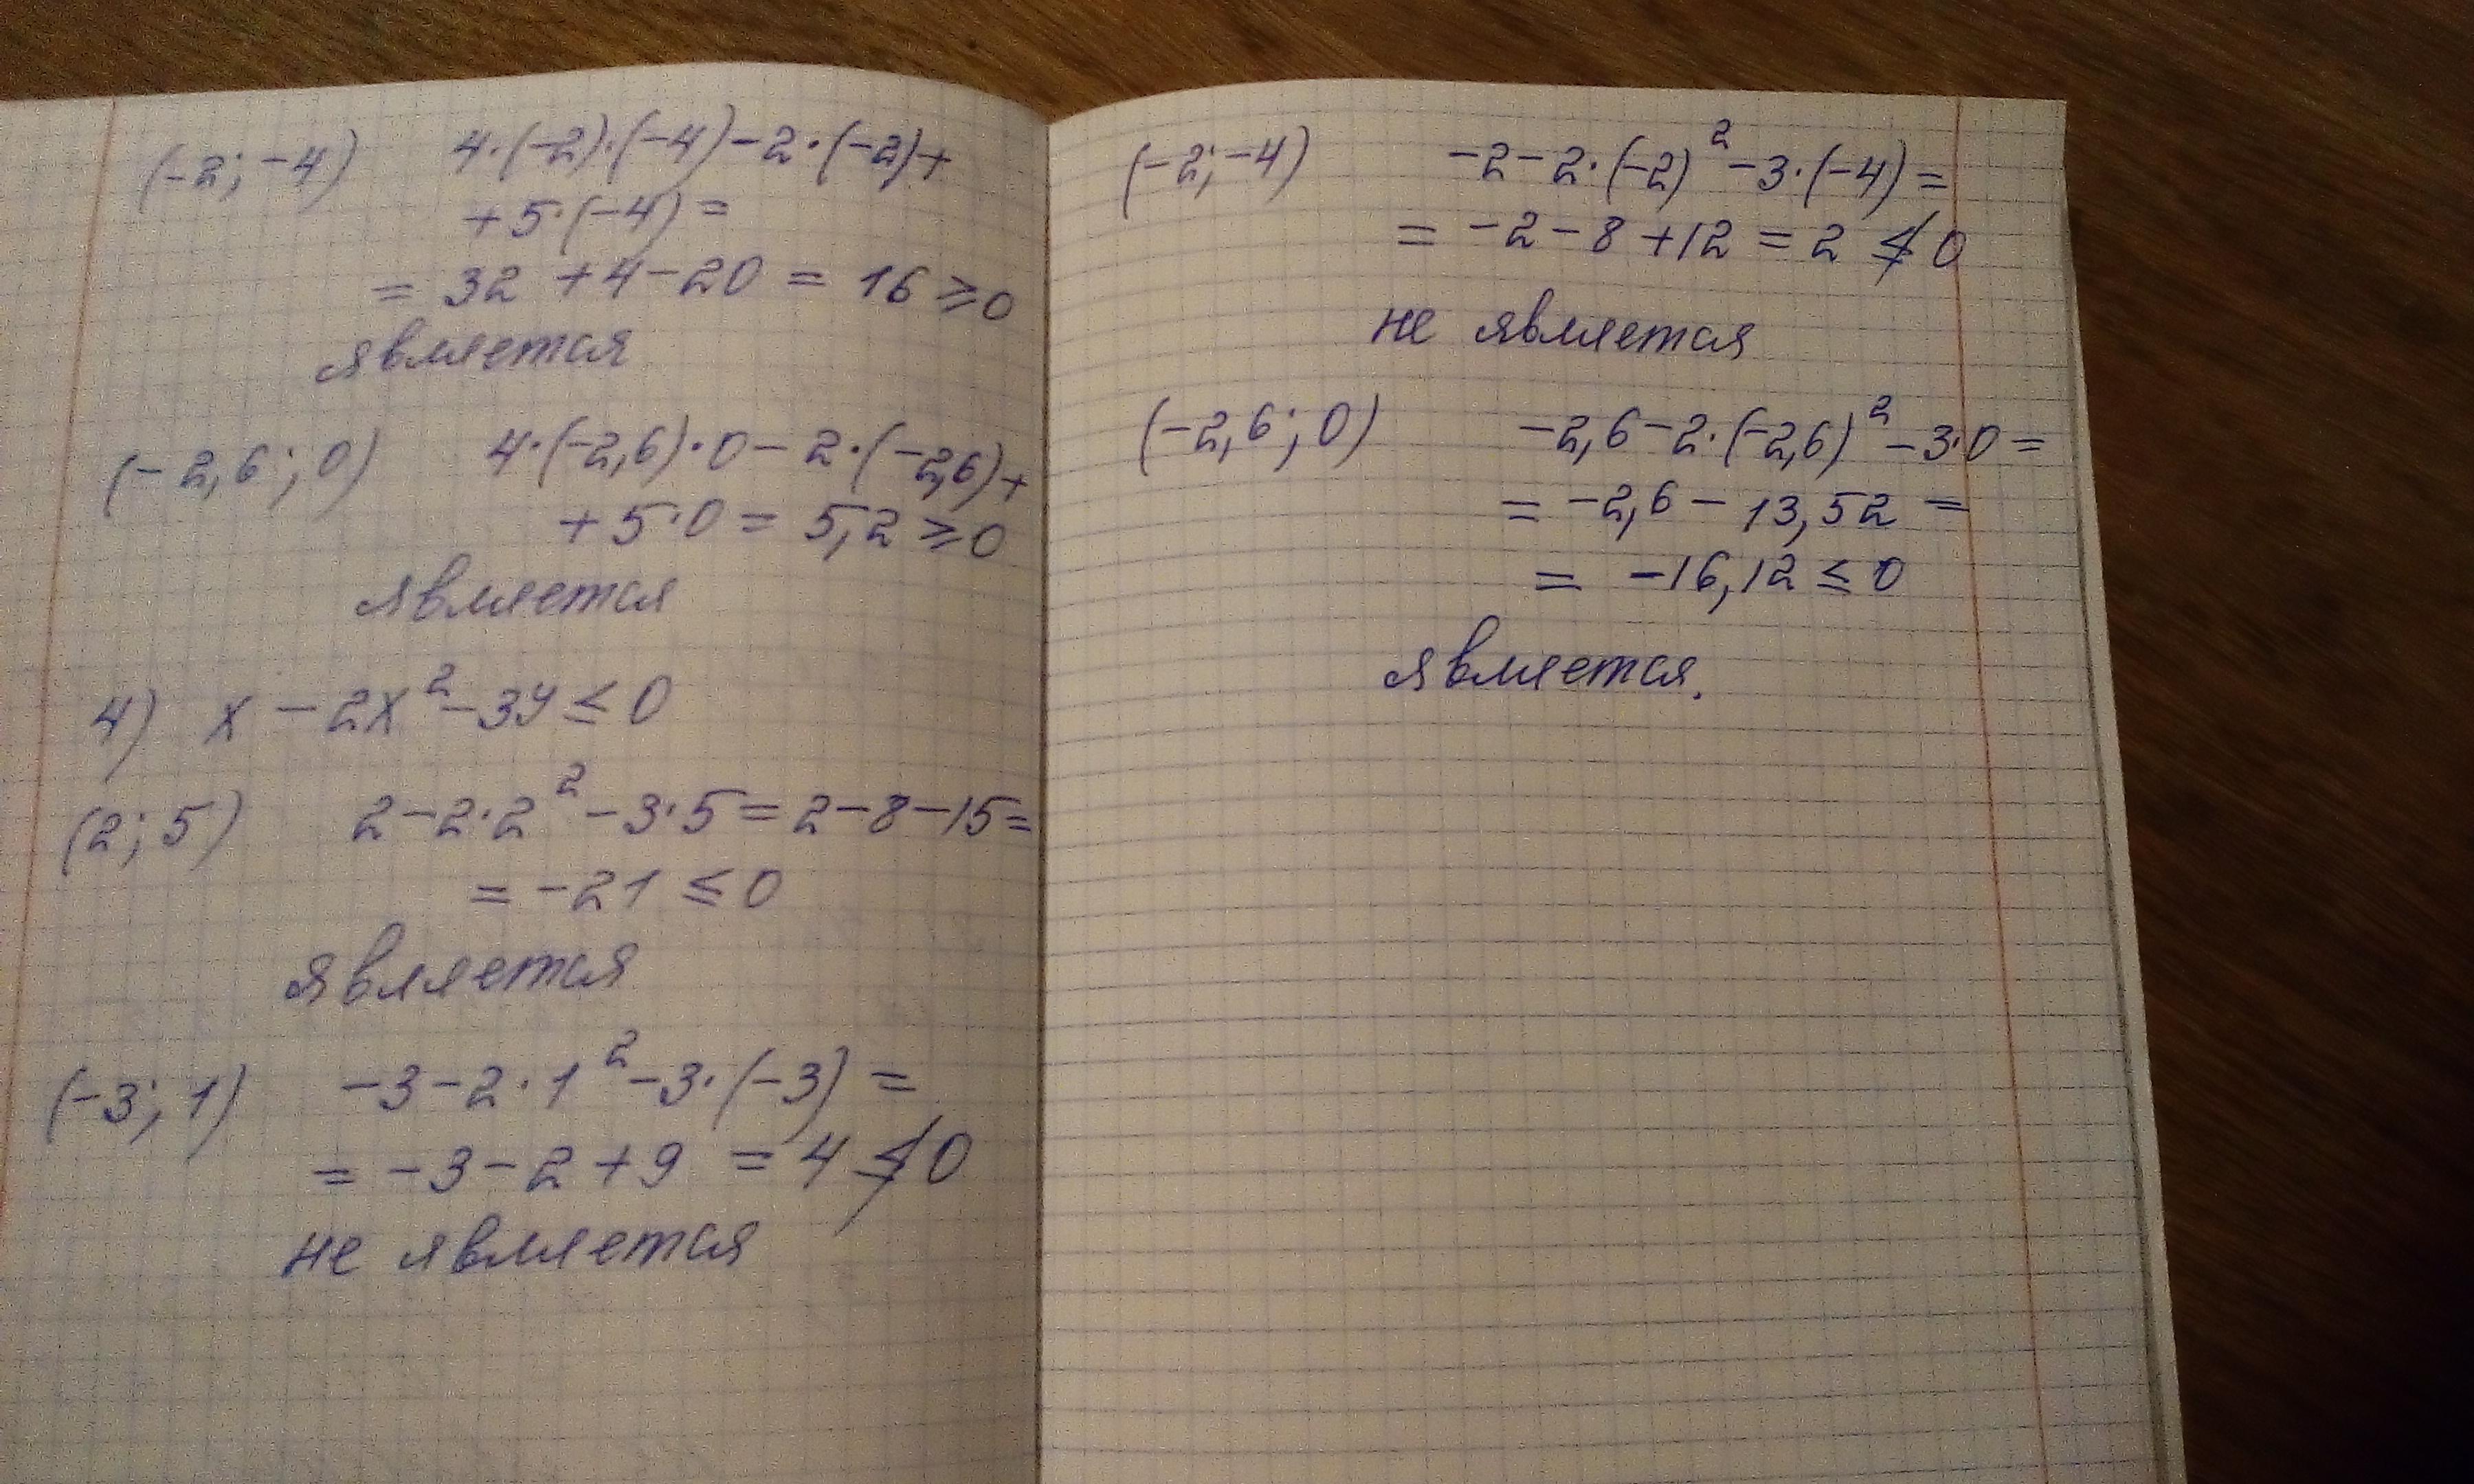 (-2; -4) 4·(-2)·(-4)-2·(-2)+
+5·(-4)=
= 32 +4-20 = 16 ⩾0
является
(-2,6; 0) 4·(-2,6)·0-2·(-2,6)+
+5·0 = 5,2 ⩾0
является
4) x - 2x²-3y ≤ 0
(2; 5) 2-2·2²-3·5=2-8-15=
= -21 ≤ 0
является
(-3; 1) -3-2·1²-3·(-3)=
= -3-2+9 = 4 ≰ 0
не является
(-2; -4) -2-2·(-2)²-3·(-4)=
= -2-8+12 = 2 ≰ 0
не является
(-2,6; 0) -2,6-2·(-2,6)²-3·0=
= -2,6 - 13,52 =
= -16,12 ≤ 0
является.